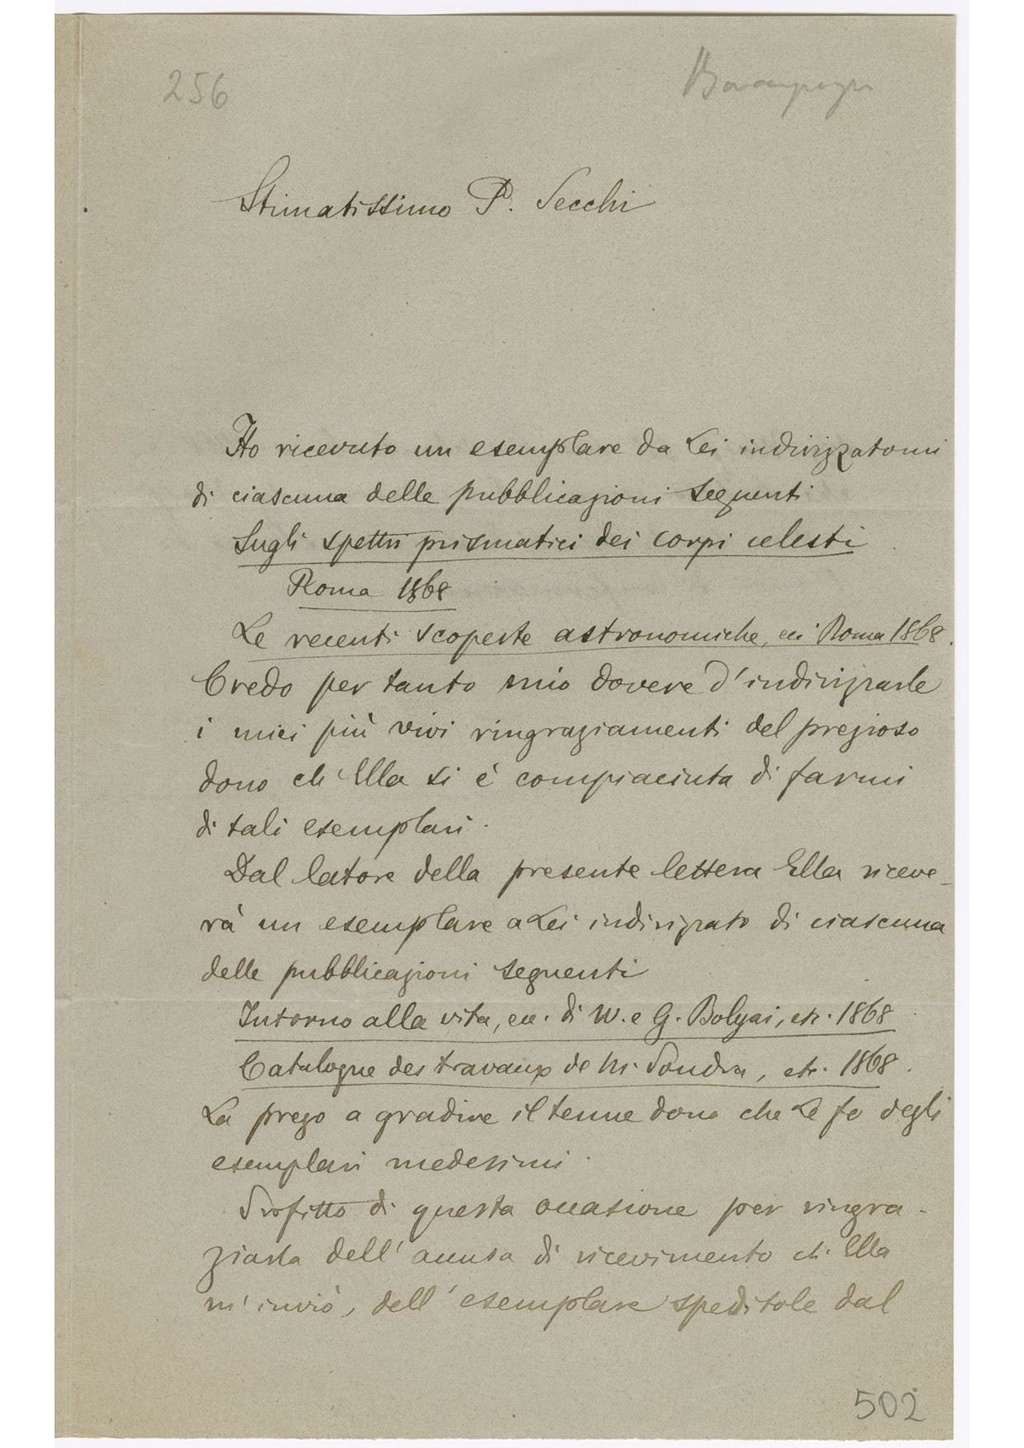 256
Stimatissimo P. Secchi
Ho ricevuto un esemplare da Lei indirizzatomi
di ciascuna delle pubblicazioni seguenti
Sugli spettri prismatici dei corpi celesti
Roma 1868
Le recenti scoperte astronomiche, ecc Roma 1868.
Credo per tanto mio dovere d'indirizzarle
i miei più vivi ringraziamenti del prezioso
dono ch'Ella si è compiaciuta di farmi
di tali esemplari.
Dal latore della presente lettera Ella riceve-
rà un esemplare a Lei indirizzato di ciascuna
delle pubblicazioni seguenti
Intorno alla vita, ecc. di W. e G. Bolyai, etc. 1868
Catalogue des travaux de M. , etc. 1868.
La prego a gradire il tenue dono che Le fo degli
esemplari medesimi.
Profitto di questa occasione per ringra-
ziarla dell' accusa di ricevimento ch'Ella
m'inviò, dell'esemplare speditole dal
502